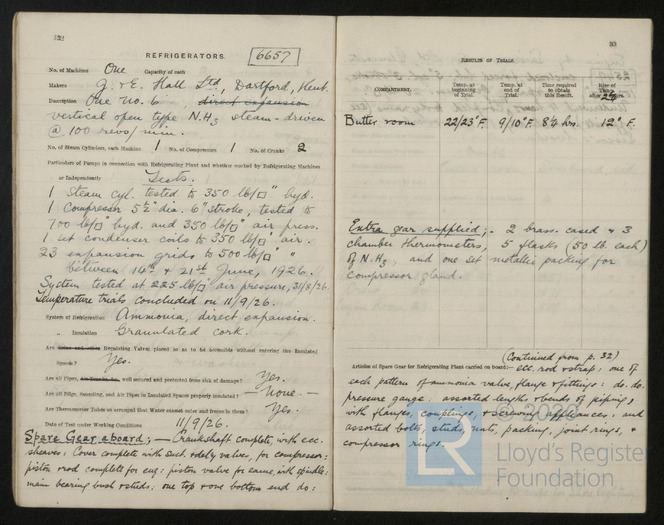 32
REFRIGERATORS.
6657
No. of Machines One Capacity of each
Makers J. & E. Hall Ltd, Dartford, Kent.
Description One No. 6 direct expansion
vertical open type N.H3 steam-driven
@ 100 revs/min.
No. of Steam Cylinders, each Machine 1 No. of Compressors 1 No. of Cranks 2
Particulars of Pumps in connection with Refrigerating Plant and whether worked by Refrigerating Machines
or Independently Tests.
1 Steam cyl. tested to 350 lb/□" hyd.
1 Compressor 5½" dia. 6" stroke, tested to
700 lb/□" hyd. and 350 lb/□" air press.
1 set condenser coils to 350 lb/□" air.
23 expansion grids to 500 lb/□" "
between 14th & 21st June, 1926.
System tested at 225 lb/□" air pressure, 31/8/26.
Temperature trials concluded on 11/9/26.
System of Refrigeration Ammonia, direct expansion.
" Insulation Granulated cork.
Are Regulating Valves placed so as to be accessible without entering the Insulated
Spaces? Yes.
Are all Pipes, well secured and protected from risk of damage? Yes.
Are all Bilge, Sounding, and Air Pipes in Insulated Spaces properly insulated? — None —
Are Thermometer Tubes so arranged that Water cannot enter and freeze in them? Yes.
Date of Test under Working Conditions 11/9/26.
Spare Gear aboard; — Crankshaft complete, with ecc.
sheaves: Cover complete with suct & dely valves, for compressor:
piston & rod complete for eng: piston valve for same, with spindle:
main bearing bush & studs: one top & one bottom end do:
33
RESULTS OF TRIALS.
COMPARTMENT. Temp. at beginning of Trial. Temp. at end of Trial. Time required to obtain this Result. Rise of Temp. after
Butter room 22/23°F. 9/10°F. 8¼ hrs. 12° F.
Extra gear supplied; — 2 brass. cased & 3
chamber thermometers, 5 flasks (50 lb. each)
of N.H3, and one set metallic packing for
compressor gland.
(Continued from p. 32)
Articles of Spare Gear for Refrigerating Plant carried on board:— ecc. rod & strap: one of
each pattern of ammonia valve, flange & fittings: do. do.
pressure gauge. assorted lengths & bends of piping,
with flanges, couplings, & screwing appliances: and
assorted bolts, studs, nuts, packing, joint rings, &
compressor rings.
LR
Lloyd's Register
Foundation